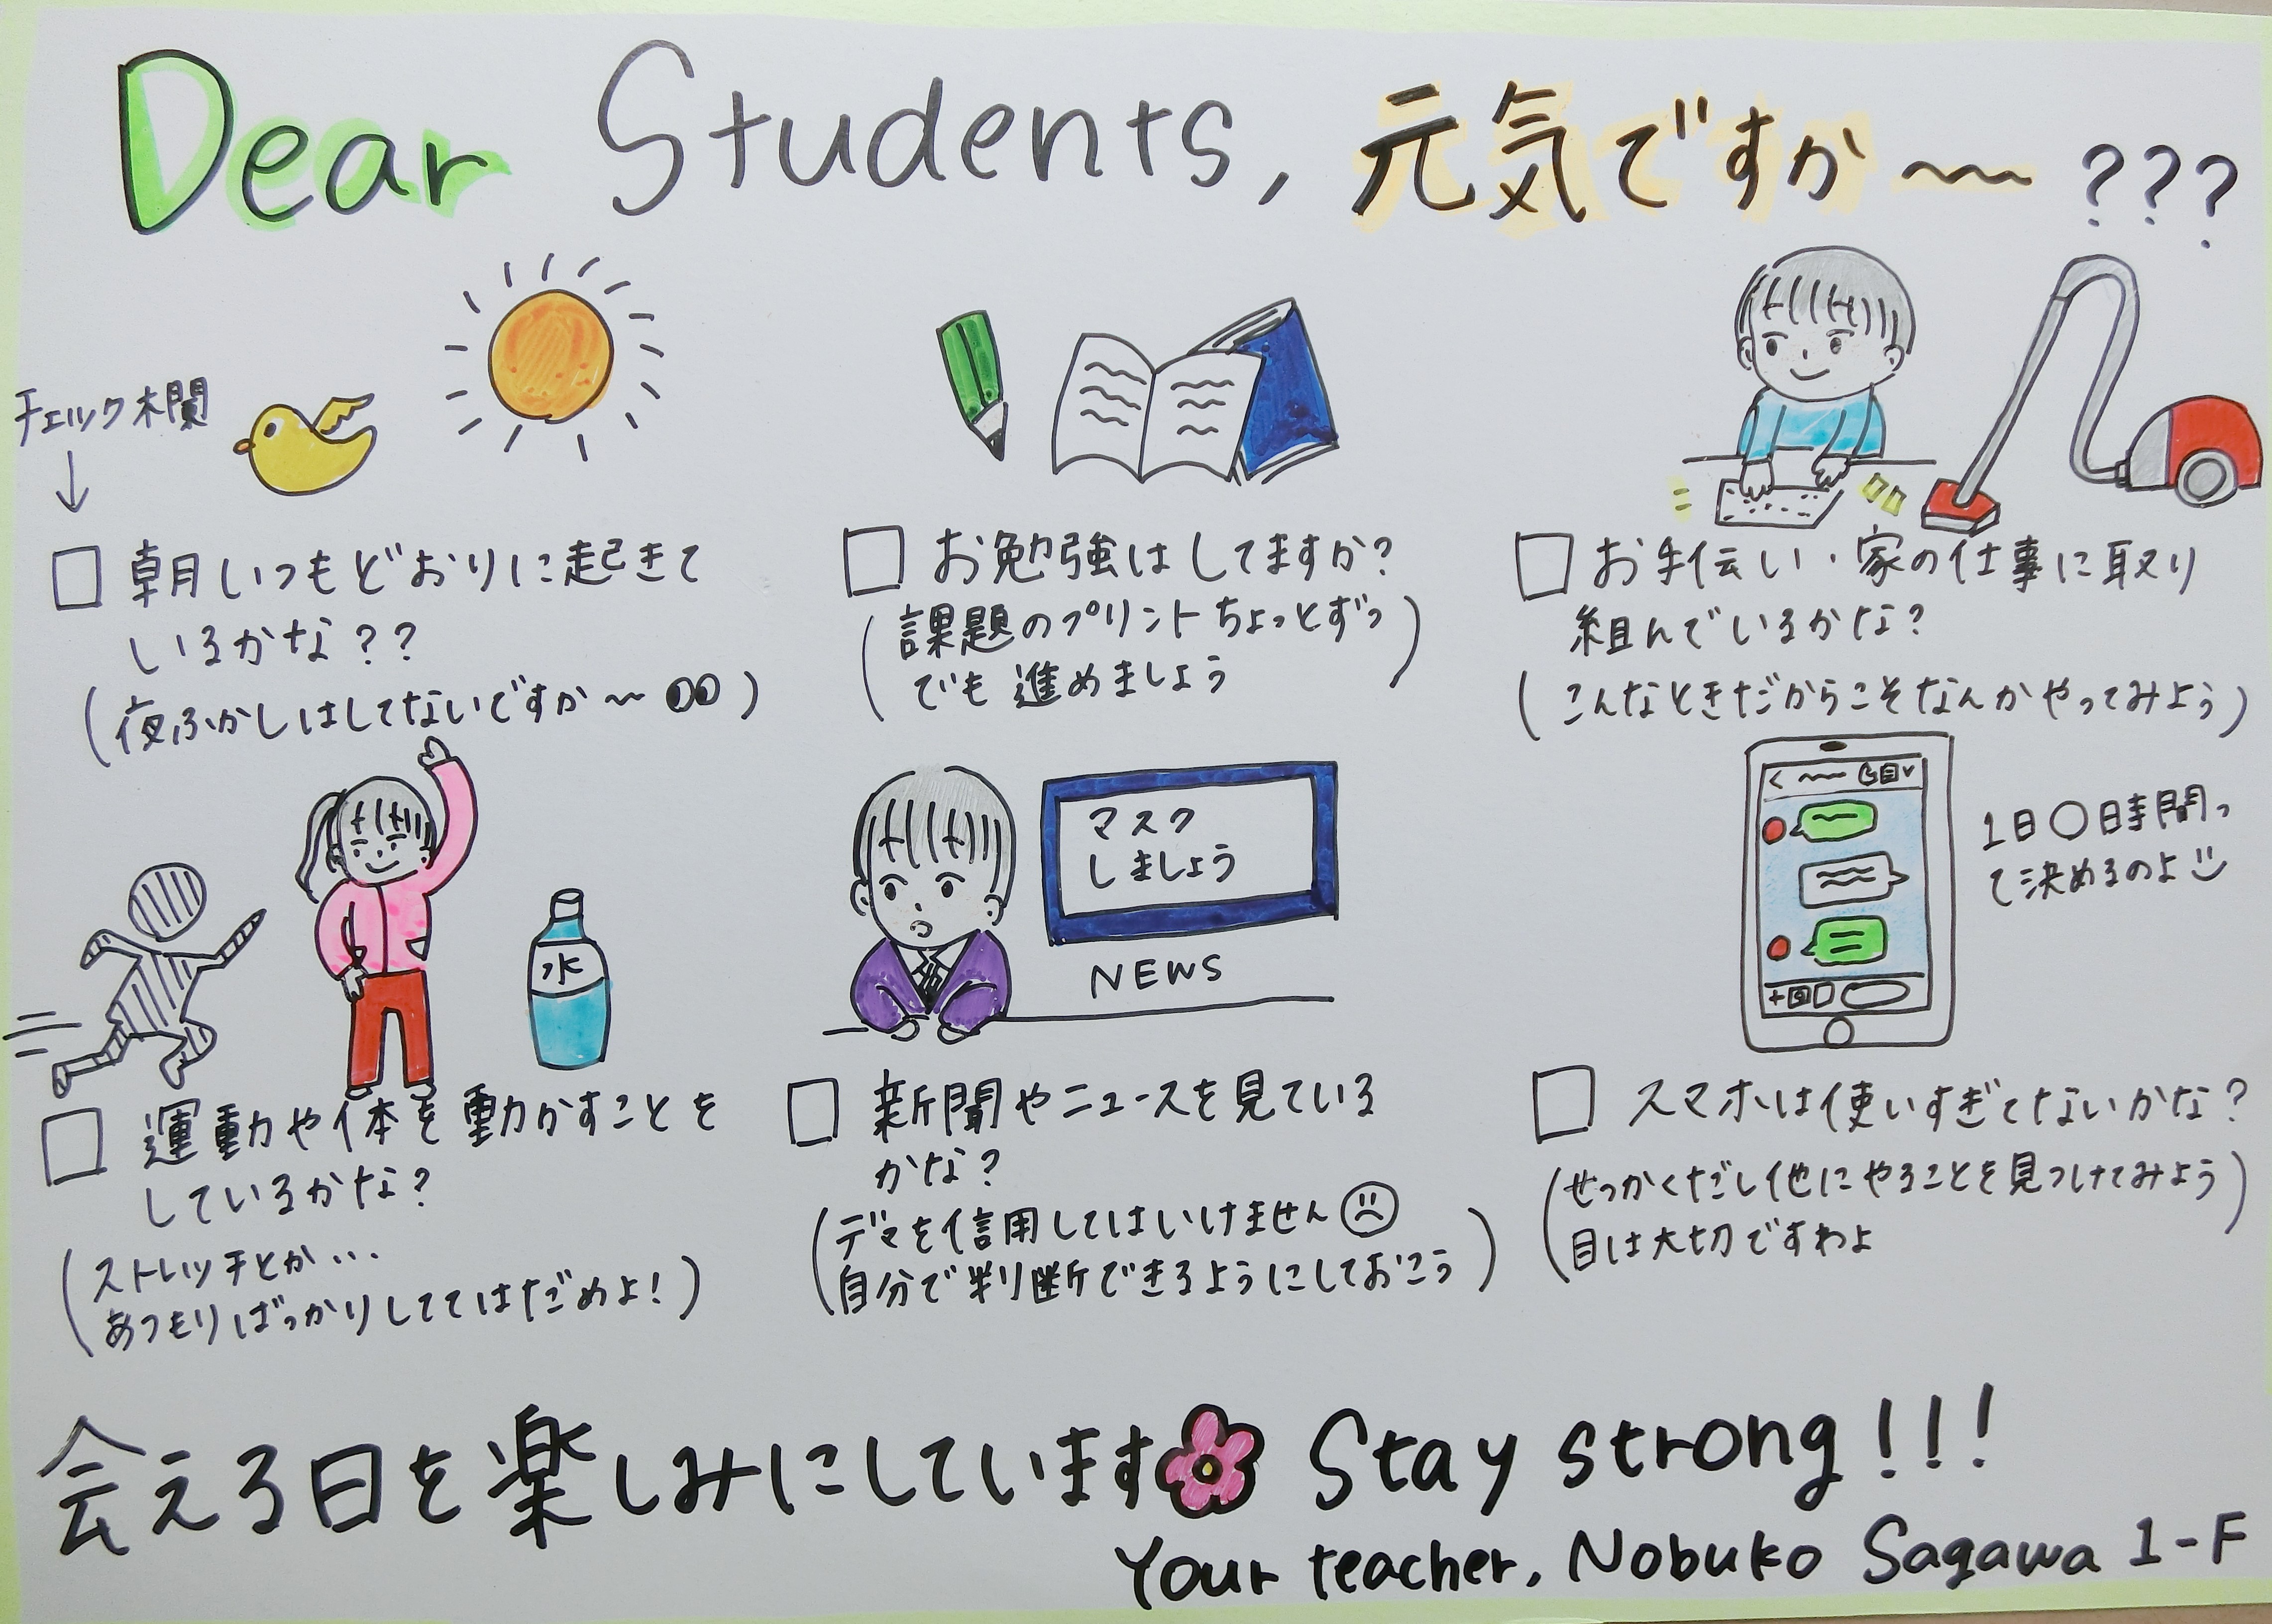 Dear Students, 元気ですか〜???
チェック欄
↓
□ 朝いつもどおりに起きて
いるかな??
(夜ふかしはしてないですか〜)
□ お勉強はしてますか?
(課題のプリントちょっとずつ
でも進めましょう)
□ お手伝い・家の仕事に取り
組んでいるかな?
(こんなときだからこそなんかやってみよう)
水
□ 運動や体を動かすことを
しているかな?
(ストレッチとか…
あつもりばっかりしててはだめよ!)
マスク
しましょう
NEWS
□ 新聞やニュースを見ている
かな?
(デマを信用してはいけません
自分で判断できるようにしておこう)
1日○時間っ
て決めるのよ
□ スマホは使いすぎてないかな?
(せっかくだし他にやることを見つけてみよう
目は大切ですわよ)
会える日を楽しみにしています Stay strong!!!
Your teacher, Nobuko Sagawa 1-F